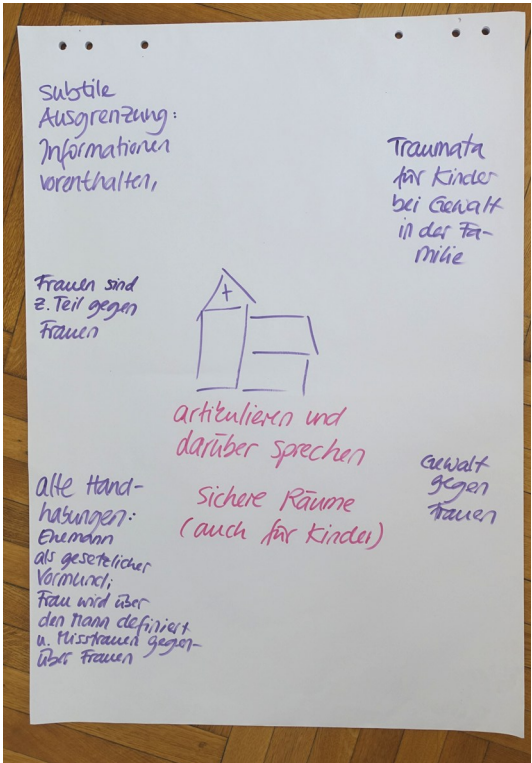 subtile
Ausgrenzung:
Informationen
vorenthalten,
Traumata
für Kinder
bei Gewalt
in der Fa-
milie
Frauen sind
z. Teil gegen
Frauen
artikulieren und
darüber sprechen
sichere Räume
(auch für Kinder)
Gewalt
gegen
Frauen
alte Hand-
habungen:
Ehemann
als gesetzlicher
Vormund;
Frau wird über
den Mann definiert
u. Misstrauen gegen-
über Frauen